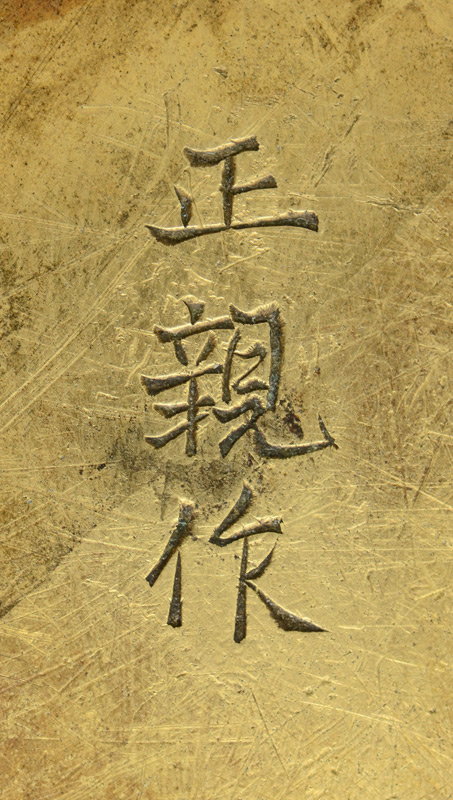 正親作